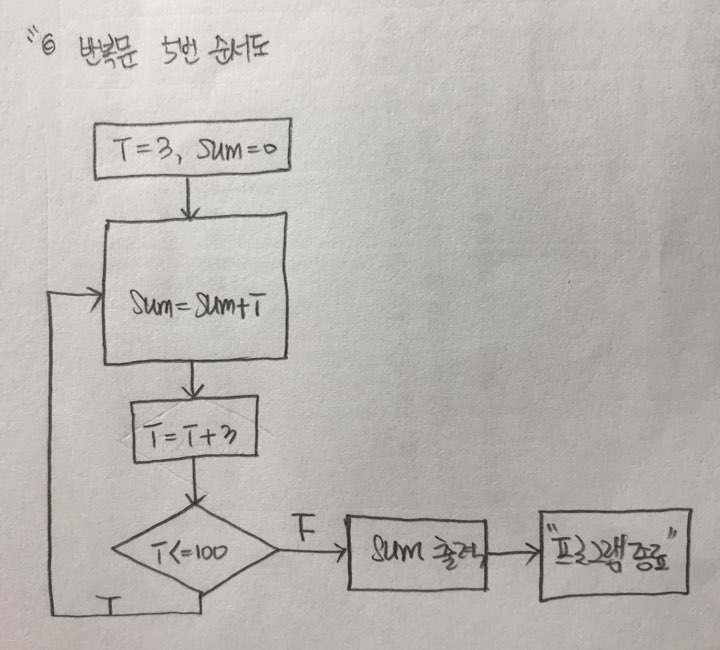 ⑥ 반복문 5번 순서도
T=3, Sum=0
Sum=Sum+T
T=T+3
T<=100
T
F
Sum 출력
"프로그램 종료"